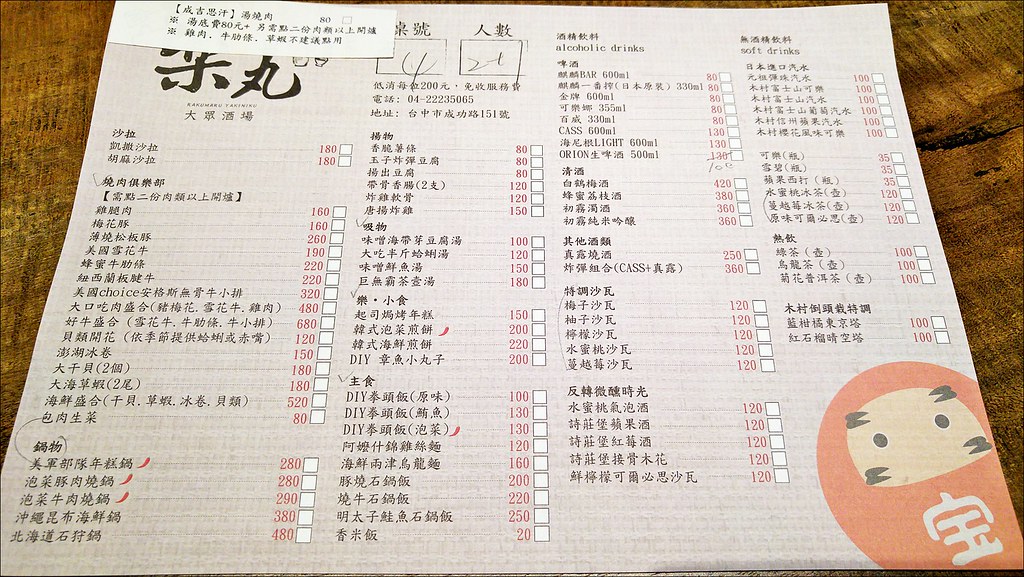 【成吉思汗】湯燒肉 80
※ 湯底費80元+ 另需點二份肉類以上開爐
※ 雞肉、牛肋條、草蝦不建議點用
樂丸
RAKUMARU YAKINIKU
大眾酒場
桌號 人數
低消每位200元,免收服務費
電話: 04-22235065
地址: 台中市成功路151號
沙拉
凱撒沙拉 180
胡麻沙拉 180
燒肉俱樂部
【需點二份肉類以上開爐】
雞腿肉 160
梅花豚 160
薄燒松板豚 260
美國雪花牛 190
蜂蜜牛肋條 220
紐西蘭板腱牛 220
美國choice安格斯無骨牛小排 320
大口吃肉盛合(豬梅花.雪花牛.雞肉) 480
好牛盛合 (雪花牛.牛肋條.牛小排) 680
貝類開花 (依季節提供蛤蜊或赤嘴) 120
澎湖冰卷 150
大干貝(2個) 180
大海草蝦(2尾) 180
海鮮盛合(干貝.草蝦.冰卷.貝類) 520
包肉生菜 80
鍋物
美軍部隊年糕鍋 280
泡菜豚肉燒鍋 280
泡菜牛肉燒鍋 290
沖繩昆布海鮮鍋 380
北海道石狩鍋 480
揚物
香脆薯條 80
玉子炸彈豆腐 80
揚出豆腐 80
帶骨香腸(2支) 120
炸雞軟骨 120
唐揚炸雞 150
吸物
味噌海帶芽豆腐湯 100
大吃半斤蛤蜊湯 120
味噌鮮魚湯 150
巨無霸茶壺湯 180
樂・小食
起司焗烤年糕 150
韓式泡菜煎餅 200
韓式海鮮煎餅 220
DIY 章魚小丸子 200
主食
DIY拳頭飯(原味) 100
DIY拳頭飯(鮪魚) 130
DIY拳頭飯(泡菜) 130
阿嬤什錦雞絲麵 120
海鮮兩津烏龍麵 160
豚燒石鍋飯 200
燒牛石鍋飯 220
明太子鮭魚石鍋飯 250
香米飯 20
酒精飲料
alcoholic drinks
啤酒
麒麟BAR 600ml 80
麒麟一番搾(日本原裝) 330ml 80
金牌 600ml 80
可樂娜 355ml 80
百威 330ml 80
CASS 600ml 130
海尼根LIGHT 600ml 130
ORION生啤酒 500ml 130
100
清酒
白鶴梅酒 420
蜂蜜荔枝酒 380
初霧濁酒 360
初霧純米吟釀 360
其他酒類
真露燒酒 250
炸彈組合(CASS+真露) 360
特調沙瓦
梅子沙瓦 120
柚子沙瓦 120
檸檬沙瓦 120
水蜜桃沙瓦 120
蔓越莓沙瓦 120
反轉微醺時光
水蜜桃氣泡酒 120
詩莊堡蘋果酒 120
詩莊堡紅莓酒 120
詩莊堡接骨木花 120
鮮檸檬可爾必思沙瓦 120
無酒精飲料
soft drinks
日本進口汽水
元祖彈珠汽水 100
木村富士山可樂 100
木村富士山汽水 100
木村富士山葡萄汽水 100
木村信州蘋果汽水 100
木村櫻花風味可樂 100
可樂(瓶) 35
雪碧(瓶) 35
蘋果西打 (瓶) 35
水蜜桃冰茶(壺) 120
蔓越莓冰茶(壺) 120
原味可爾必思(壺) 120
熱飲
綠茶 (壺) 100
烏龍茶 (壺) 100
菊花普洱茶 (壺) 100
木村倒頭栽特調
藍柑橘東京塔 100
紅石榴晴空塔 100
宝